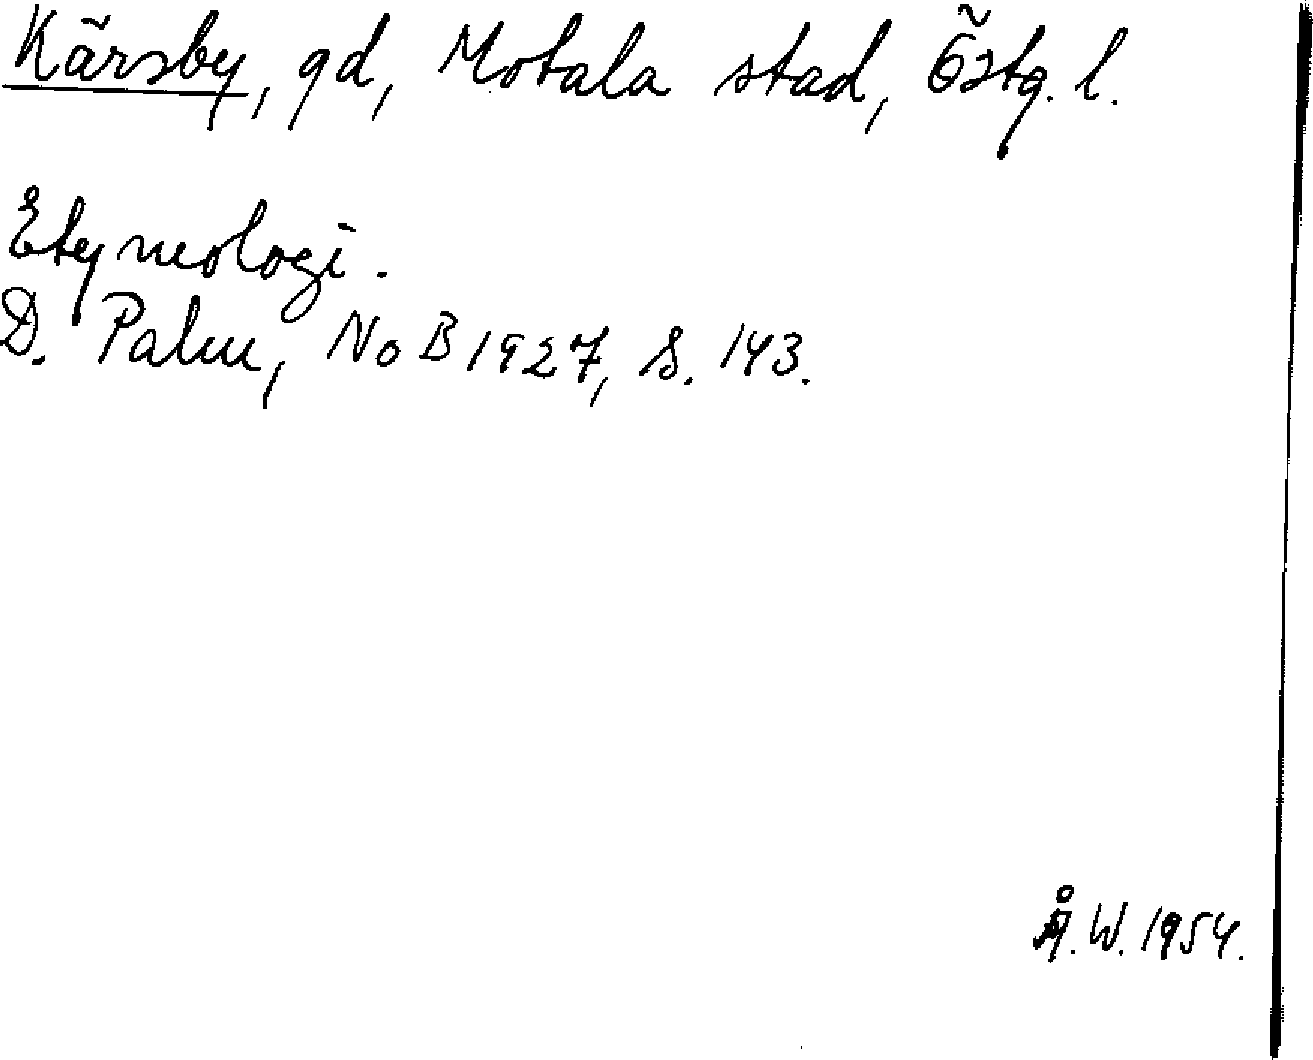 Kärsby, gd, Motala stad, Östg. l.
Etymologi.
D. Palm, NoB 1927, S. 143.
Å. W. 1954.